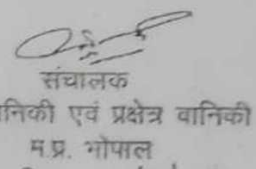 संचालक
निकी एवं प्रक्षेत्र वानिकी
म.प्र. भोपाल